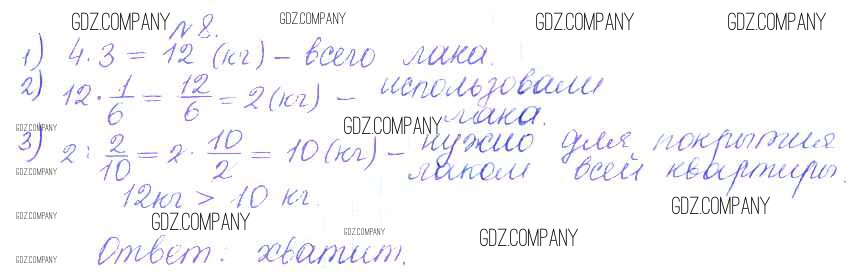 GDZ.COMPANY GDZ.COMPANY GDZ.COMPANY GDZ.COMPANY
N 8.
1) 4 · 3 = 12 (кг) – всего лака.
2) 12 · 1/6 = 12/6 = 2 (кг) – использовали
лака.
GDZ.COMPANY GDZ.COMPANY
3) 2 : 2/10 = 2 · 10/2 = 10 (кг) – нужно для покрытия
GDZ.COMPANY лаком всей квартиры.
12кг > 10 кг.
GDZ.COMPANY GDZ.COMPANY
GDZ.COMPANY GDZ.COMPANY
GDZ.COMPANY GDZ.COMPANY
Ответ: хватит.
GDZ.COMPANY